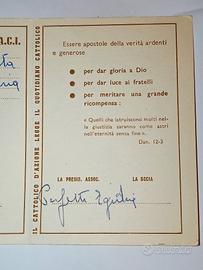 A.C.I.
IL CATTOLICO D'AZIONE LEGGE IL QUOTIDIANO CATTOLICO
Essere apostole della verità ardenti
e generose
per dar gloria a Dio
per dar luce ai fratelli
per meritare una grande
ricompensa :
« Quelli che istruiscono molti nel-
la giustizia saranno come astri
nell'eternità senza fine ».
Dan. 12-3
LA PRESID. ASSOC.
LA SOCIA
subito.it